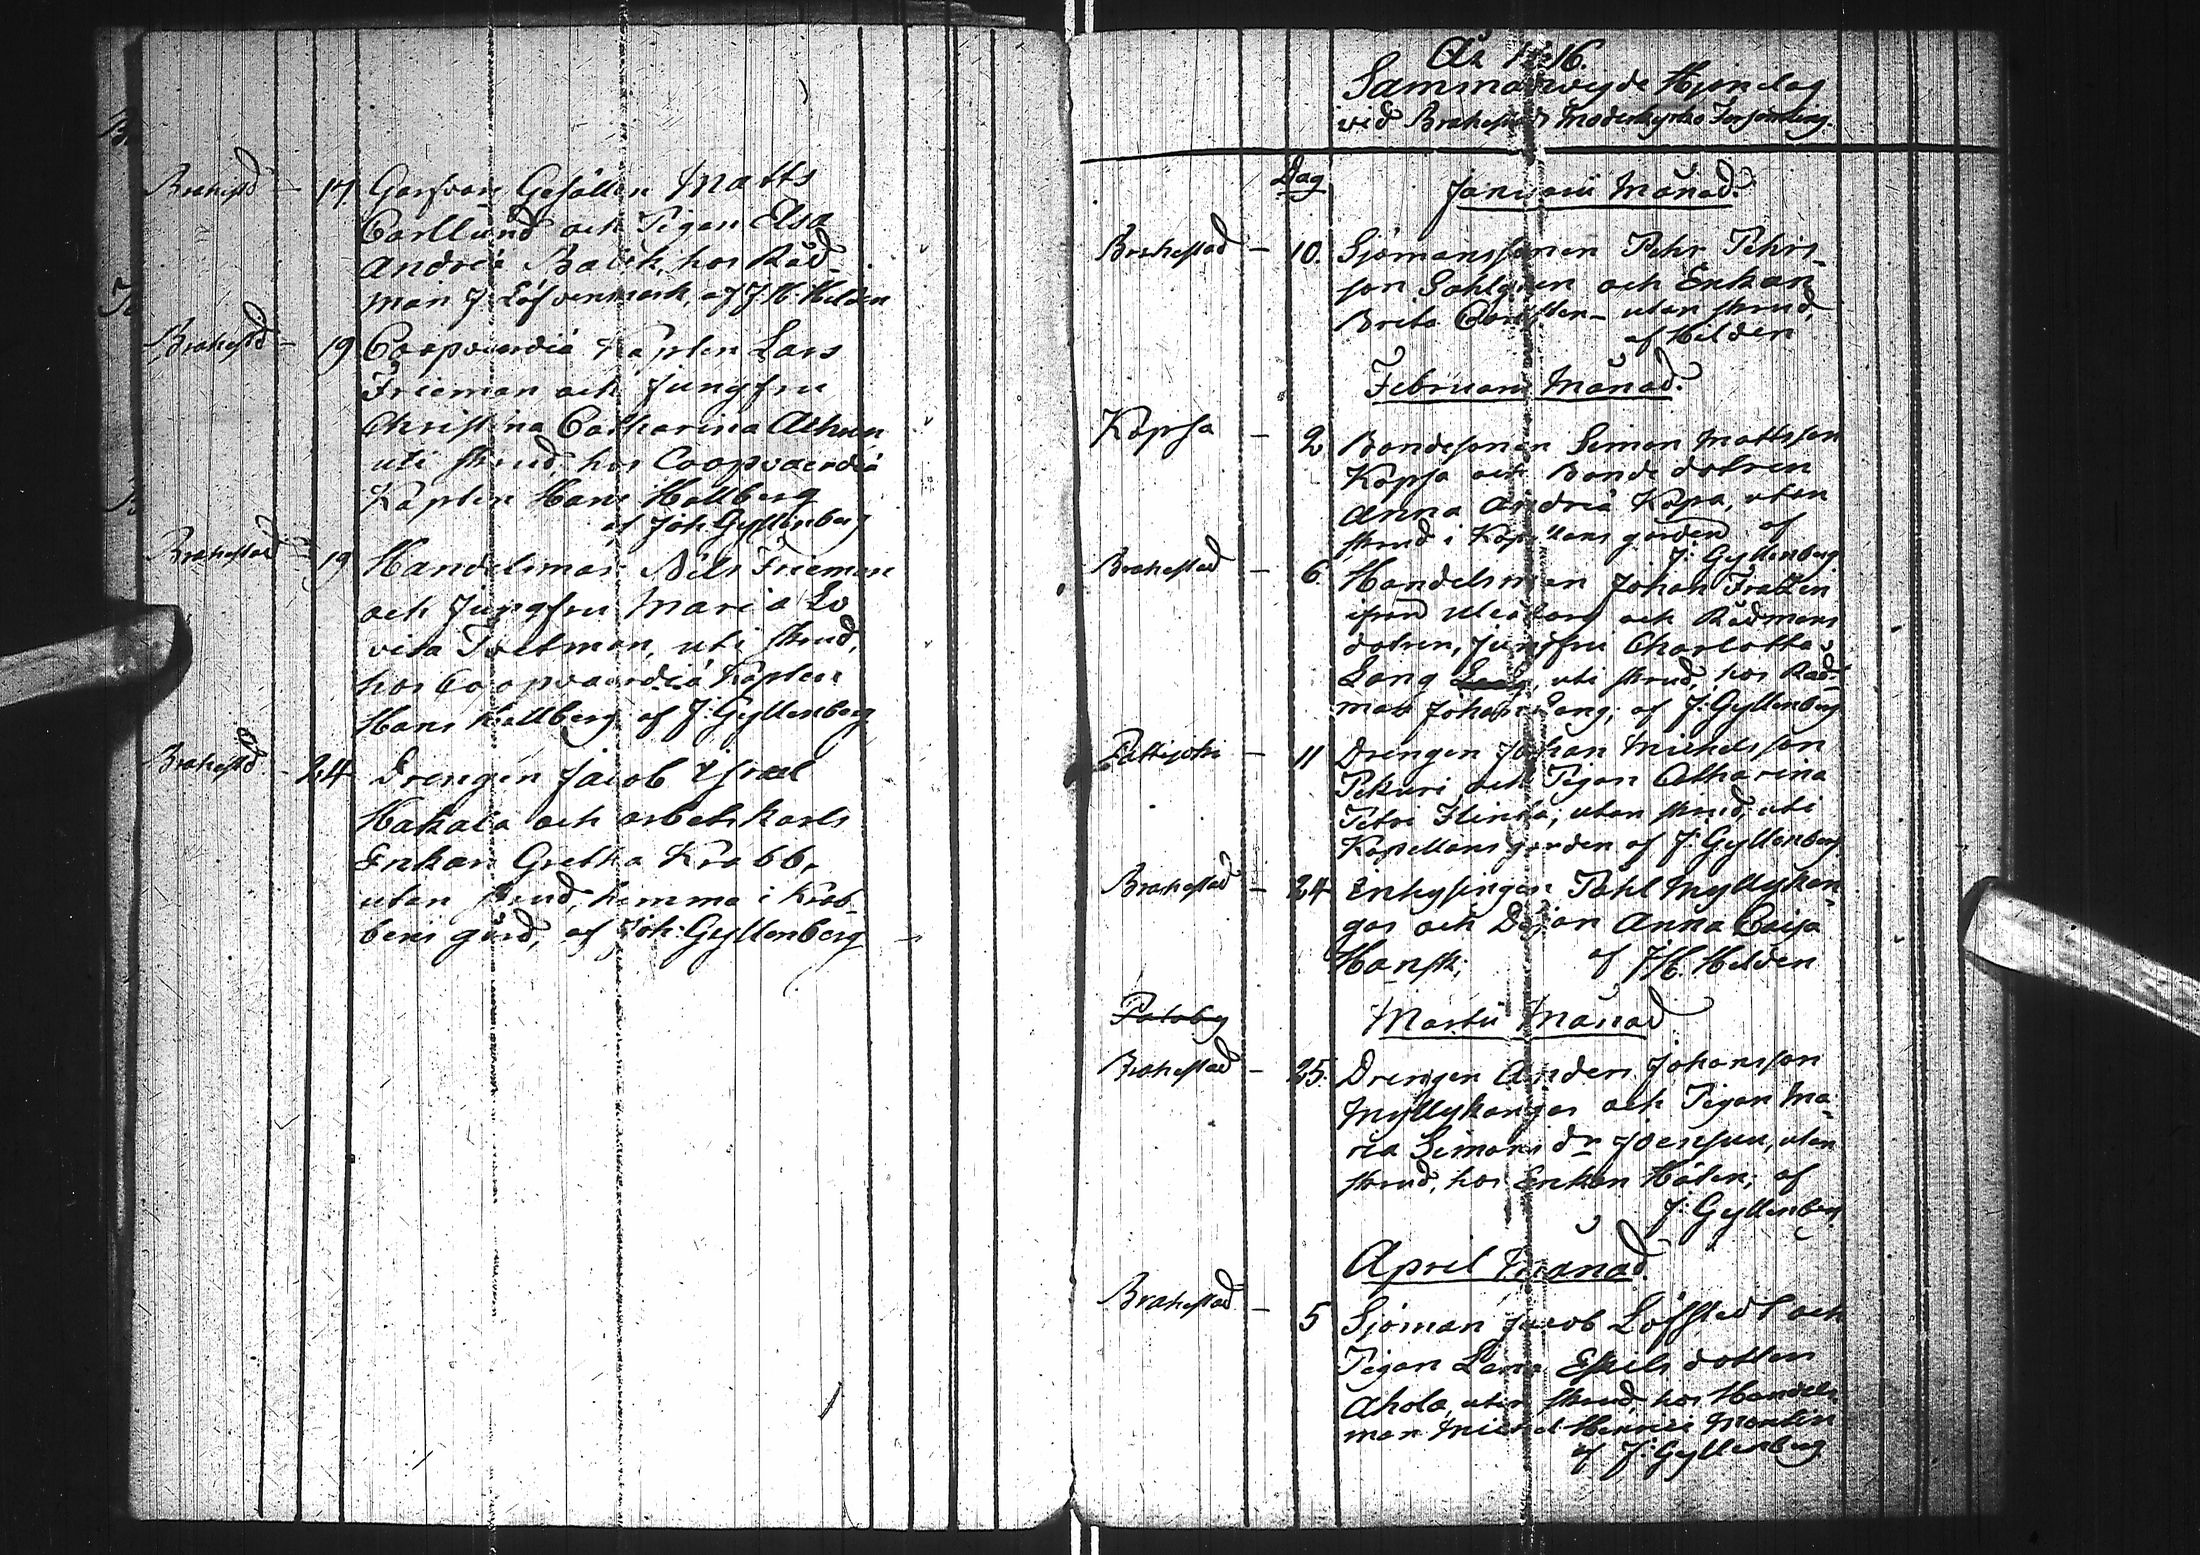 Brahestad – 17. Garfvare Gesällen Matts
Carllund och Pigan Elsa
Andreæ Balck, hos Råd-
man J. Löfvenmark, af J. H. Helden
Brahestad – 19 Coopvaerdiä Kapten Lars
Frieman och Jungfru
Christina Catharina
uti skrud, hos Coopvaerdiä
Kapten Hans Hellberg
af Joh. Gyllenberg
Brahestad 19 Handelsman Nils Frieman
och Jungfru Maria Lo
visa Tvetman, uti skrud,
hos Coopvaerdiä Kapten
Hans Hellberg af J. Gyllenberg
Brahestad. – 24. Drengen Jacob Israel
Hakala och arbetskarls
Enkan Gretha Krabb,
utan skrud, hemma i Krab-
bens gård, af Joh: Gyllenberg
År 1816.
Sammanvigde Hjonelag
vid Brahestad Moderkyrko Församling.
Dag Januarii Månad.
Brahestad – 10. Sjömanssonen Pehr Pehrs-
son Sahlgren och Enkan
Brita utan skrud,
af Helden
Februarii Månad.
Kopsa – 2 Bondesonen Simon Mattsson
Kopsa och Bonde dotren
Anna Andreä Kopsa, utan
skrud i Kapellans gården af
J: Gyllenberg
Brahestad – 6. Handelsman Johan Franzén
ifrån Uleåborg och Rådmans
dotren, Jungfru Charlotta
Lang uti skrud, hos Råd-
man Johan Lang; af J: Gyllenberg
Pattijoki – 11 Drengen Johan Michelsson
Pekuri och Pigan Catharina
Petri Flinka, utan skrud, uti
Kapellans gården af J: Gyllenberg
Brahestad – 24 Inhysingen Påhl Myllykan-
gas och Dejan Anna Caisa
Hansk; af J. H. Helden
Patoby Martii Månad
Brahestad – 25. Drengen Anders Johansson
Myllykangas och Pigan Ma-
ria Simonsdr Joensuu, utan
skrud, hos Enkan Hålen; af
J: Gyllenberg
April Månad.
Brahestad – 5 Sjöman Jacob Löfstedt och
Pigan Lena Eskils dotter
Ahola, utan skrud, hos Handels-
man Michel Henric Montin
af J: Gyllenberg